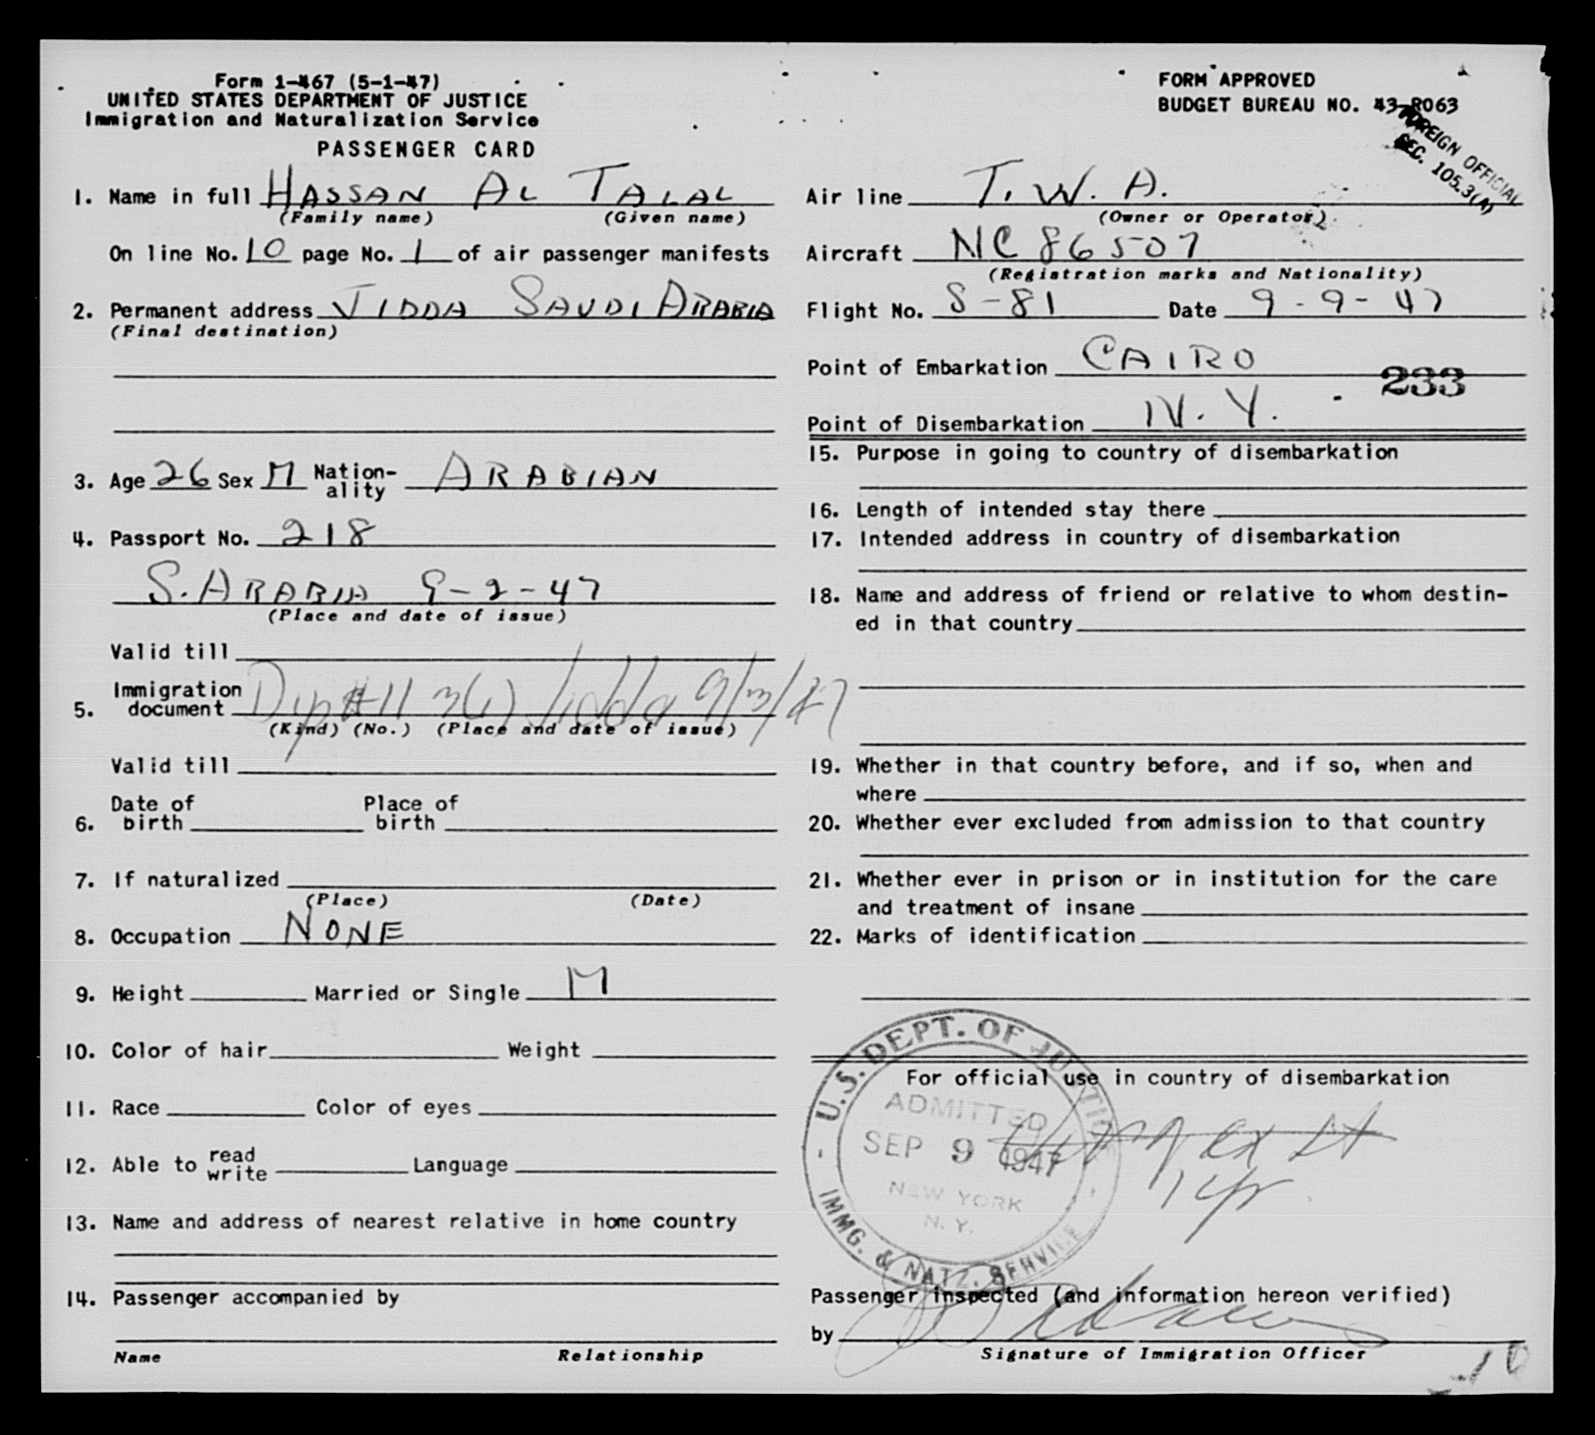 Form 1-467 (5-1-47)
UNITED STATES DEPARTMENT OF JUSTICE
Immigration and Naturalization Service
PASSENGER CARD
1. Name in full HASSAN AL TALAL
(Family name) (Given name)
On line No. 10 page No. 1 of air passenger manifests
2. Permanent address JIDDA SAUDI ARABIA
(Final destination)
3. Age 26 Sex M Nation-
ality ARABIAN
4. Passport No. 218
S. ARABIA 9-2-47
(Place and date of issue)
Valid till
Immigration
5. document Dip # 11 3(1) Jidda 9/3/47
(Kind) (No.) (Place and date of issue)
Valid till
Date of Place of
6. birth birth
7. If naturalized
(Place) (Date)
8. Occupation NONE
9. Height Married or Single M
10. Color of hair Weight
11. Race Color of eyes
12. Able to read
write Language
13. Name and address of nearest relative in home country
14. Passenger accompanied by
Name Relationship
FORM APPROVED
BUDGET BUREAU NO. 43-R063
FOREIGN OFFICIAL
SEC. 105.3(A)
Air line T.W.A.
(Owner or Operator)
Aircraft NC 86507
(Registration marks and Nationality)
Flight No. S-81 Date 9-9-47
Point of Embarkation CAIRO
233
Point of Disembarkation N.Y.
15. Purpose in going to country of disembarkation
16. Length of intended stay there
17. Intended address in country of disembarkation
18. Name and address of friend or relative to whom destin-
ed in that country
19. Whether in that country before, and if so, when and
where
20. Whether ever excluded from admission to that country
21. Whether ever in prison or in institution for the care
and treatment of insane
22. Marks of identification
U.S. DEPT. OF JUSTICE
For official use in country of disembarkation
ADMITTED
SEP 9 1947
NEW YORK
N. Y.
IMMG. & NATZ. SERVICE
1 yr
Passenger inspected (and information hereon verified)
by
Signature of Immigration Officer